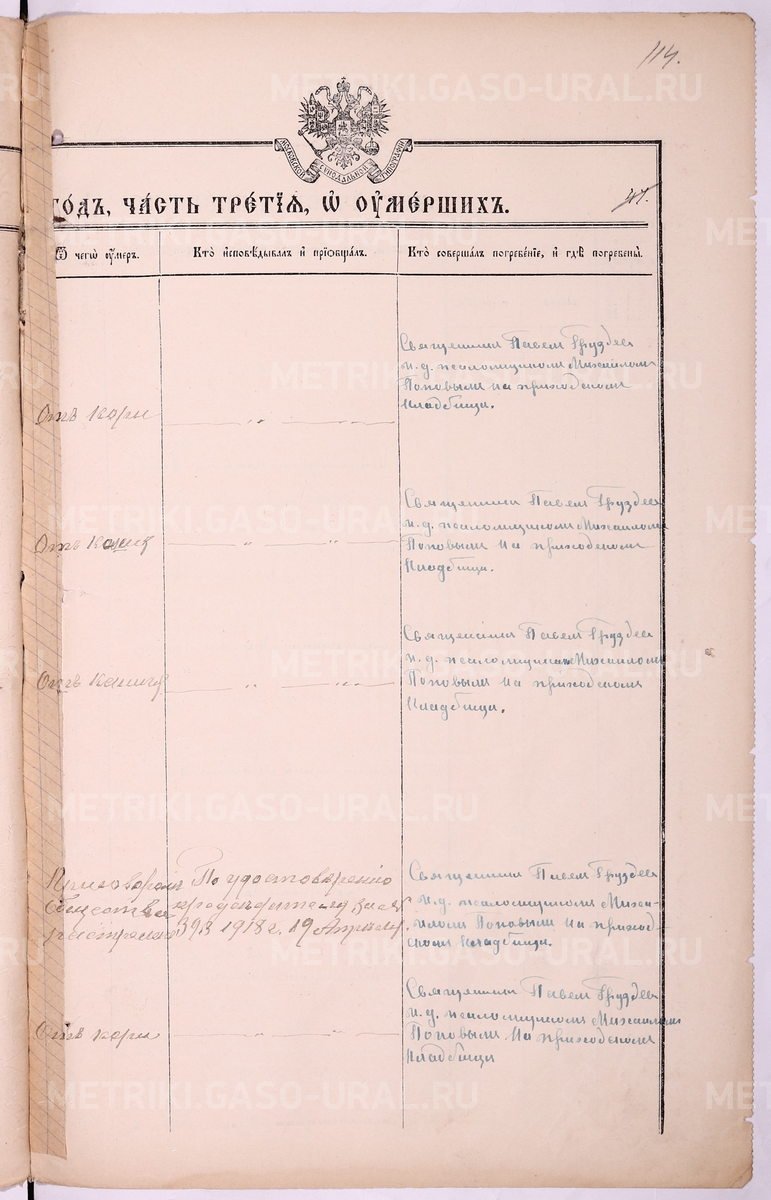 114.
МОСКОВСКОЙ СѴНОДАЛЬНОЙ ТИПОГРАФІИ
го́дъ, ча́сть тре́тїѧ, ѡ҆ ᲂу҆ме́ршихъ.
Ѿ чегѡ̀ ᲂу҆́меръ.
Кто̀ и҆сповѣ́дывалъ и҆ прїѡбща́лъ.
Кто̀ соверша́лъ погребе́нїе, и҆ гдѣ̀ погребены̀.
Священник Павел Груздев
и. д. псаломщиком Михаилом
Поповым на приходском
кладбище.
Отъ кори
Священник Павел Груздев
и. д. псаломщиком Михаилом
Поповым на приходском
кладбище.
Отъ
Священник Павел Груздев
и. д. псаломщиком Михаилом
Поповым на приходском
кладбище.
Отъ
Приговоромъ
общества
разстрелен
По удостоверению
393 1918 г. 19 Апреля.
Священник Павел Груздев
и. д. псаломщиком Миха-
илом Поповым на приход-
ском кладбище.
Отъ кори
Священник Павел Груздев
и. д. псаломщиком Михаилом
Поповым на приходском
кладбище
METRIKI.GASO-URAL.RU